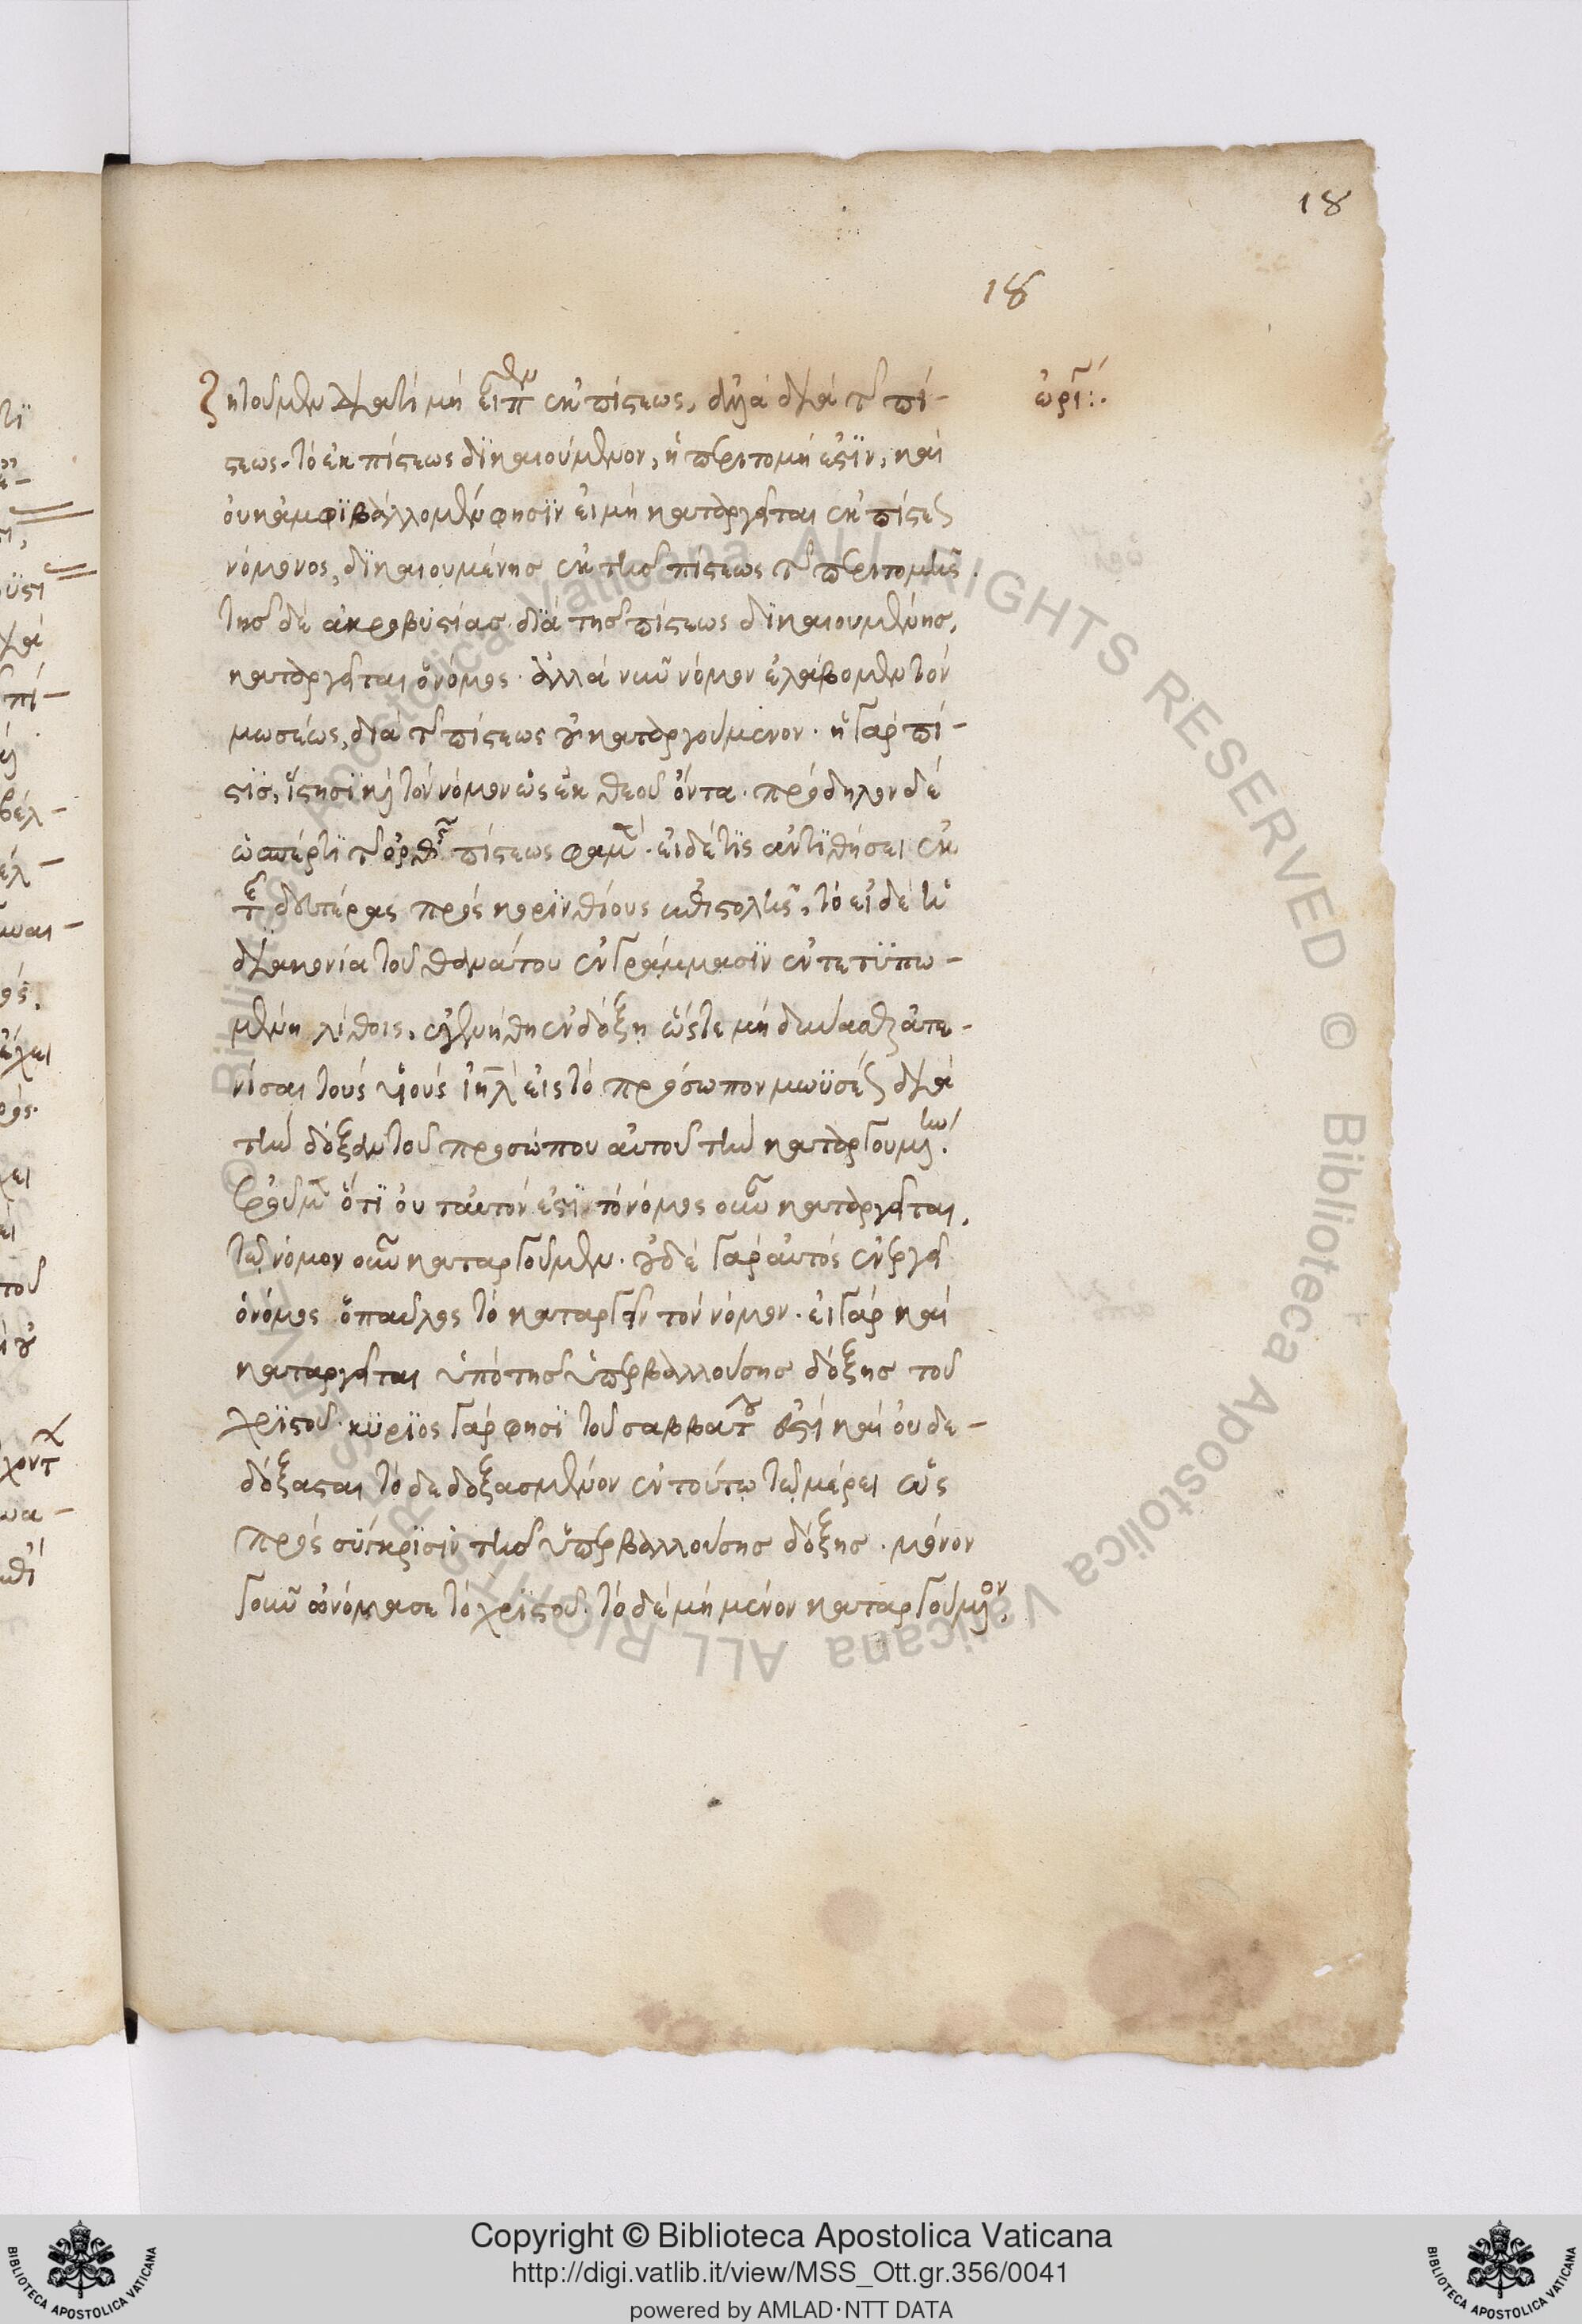 18
18
ζητοῦμεν διατί μὴ εἶπεν ἐκ πίστεως, ἀλλὰ διὰ τῆς πί-
στεως. τὸ ἐκ πίστεως δϊκαιούμενον, ἡ περιτομή ἐστϊν, καὶ
οὐκ ἀμφϊβάλλομεν φησὶν εἰ μὴ καταργεῖται ἐκ πίστεως
νόμος, δϊκαιουμένης ἐκ τῆς πίστεως τῆς περιτομῆς.
τῆς δὲ ἀκροβυστίας διὰ τῆς πίστεως δϊκαιουμένης,
καταργεῖται ὁ νόμος. ἀλλὰ νῦν νόμον ἐλάβομεν τὸν
μωσέως, διὰ τῆς πίστεως οὐ καταργούμενον. ἡ γὰρ πί-
στϊς, ἵστησϊ καὶ τὸν νόμον ὡς ἐκ θεοῦ ὄντα. πρόδηλον δὲ
ὡς περὶ τῆς ὀρθῆς πίστεως φαμὲν. εἰ δέ τϊς ἀντϊθήσει ἐκ
τῆς δευτέρας πρὸς κορϊνθίους ἐπιστολῆς, τὸ εἰ δὲ ἡ
διακονία τοῦ θανάτου ἐν γράμμασϊν ἐντετϋπω-
μένη λίθοις, ἐγενήθη ἐν δόξῃ ὥστε μὴ δύνασθαι ἀτε-
νίσαι τοὺς υἱοὺς ἰηλ εἰς τὸ πρόσωπον μωϋσέως διὰ
τὴν δόξαν τοῦ προσώπου αὐτοῦ τὴν καταργουμένην.
ἐροῦμεν ὅτϊ οὐ ταυτόν ἐστϊ τὸ νόμος οὖν καταργεῖται,
τῷ νόμον οὖν καταργοῦμεν. οὐδὲ γὰρ αὐτὸς ἐνεργεῖ
ὁ νόμος ὁ παῦλος τὸ καταργεῖν τὸν νόμον. εἰ γὰρ καὶ
καταργεῖται ὑπὸ τῆς ὑπερβαλλούσης δόξης τοῦ
χρϊστοῦ. κϋρϊος γάρ φησϊ τοῦ σαββάτου ἐστὶ καὶ οὐ δε-
δόξασται τὸ δεδοξασμένον ἐν τούτῳ τῷ μέρει ὡς
πρὸς σύγκρϊσιν τῆς ὑπερβαλλούσης δόξης. μένον
γοῦν ὠνόμασε τὸ χρϊστοῦ. τὸ δὲ μὴ μένον καταργούμενον.
ὠρι:.
Copyright © Biblioteca Apostolica Vaticana
http://digi.vatlib.it/view/MSS_Ott.gr.356/0041
powered by AMLAD·NTT DATA
BIBLIOTECA APOSTOLICA VATICANA
BIBLIOTECA APOSTOLICA VATICANA
© Biblioteca Apostolica Vaticana ALL RIGHTS RESERVED © Biblioteca Apostolica Vaticana ALL RIGHTS RESERVED